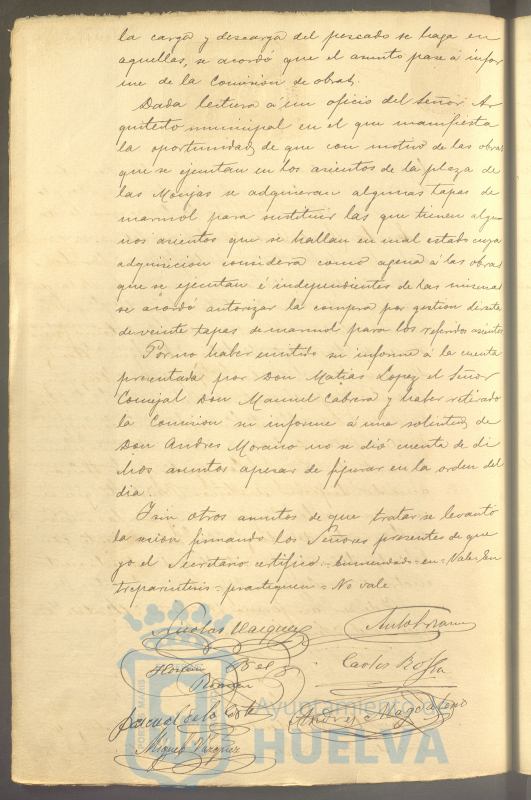 la carga y descarga del pescado se haga en
aquellas, se acordó que el asunto pase á infor
me de la Comision de obras.
Dada lectura á un oficio del Señor Ar
quitecto municipal en el que manifiesta
la oportunidad de que con motivo de las obras
que se ejecutan en los asientos de la plaza de
las Monjas se adquieran algunas tapas de
marmol para sustituir las que tienen algu
nos asientos que se hallan en mal estado cuya
adquisicion considera como agena á las obras
que se ejecutan é independientes de las mismas
se acordó autorizar la compra por gestion directa
de veinte tapas de marmol para los referidos asientos
Por no haber emitido su informe á la cuenta
presentada por Don Matias Lopez el Señor
Concejal Don Manuel Cabrera y haber retirado
la Comision su informe á una solicitud de
Don Andres Morano no se dió cuenta de di
chos asuntos apesar de figurar en la orden del
dia.
Y sin otros asuntos de que tratar se levantó
la sesion firmando los Señores presentes de que
yo el Secretario certifico = enmendado = en = Vale = En
treparéntesis = practiquen = No vale
Nicolas Vazquez
Carlos Rossa
Roman
Pascual de la Corte
Andrés Magdaleno
Miguel Vazquez
Ayuntamiento de
HUELVA